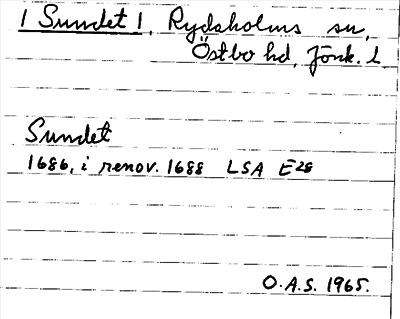 1 Sundet 1, Rydaholms sn,
Östbo hd, Jönk. l
Sundet
1686, i renov. 1688 LSA E28
O.A.S. 1965.